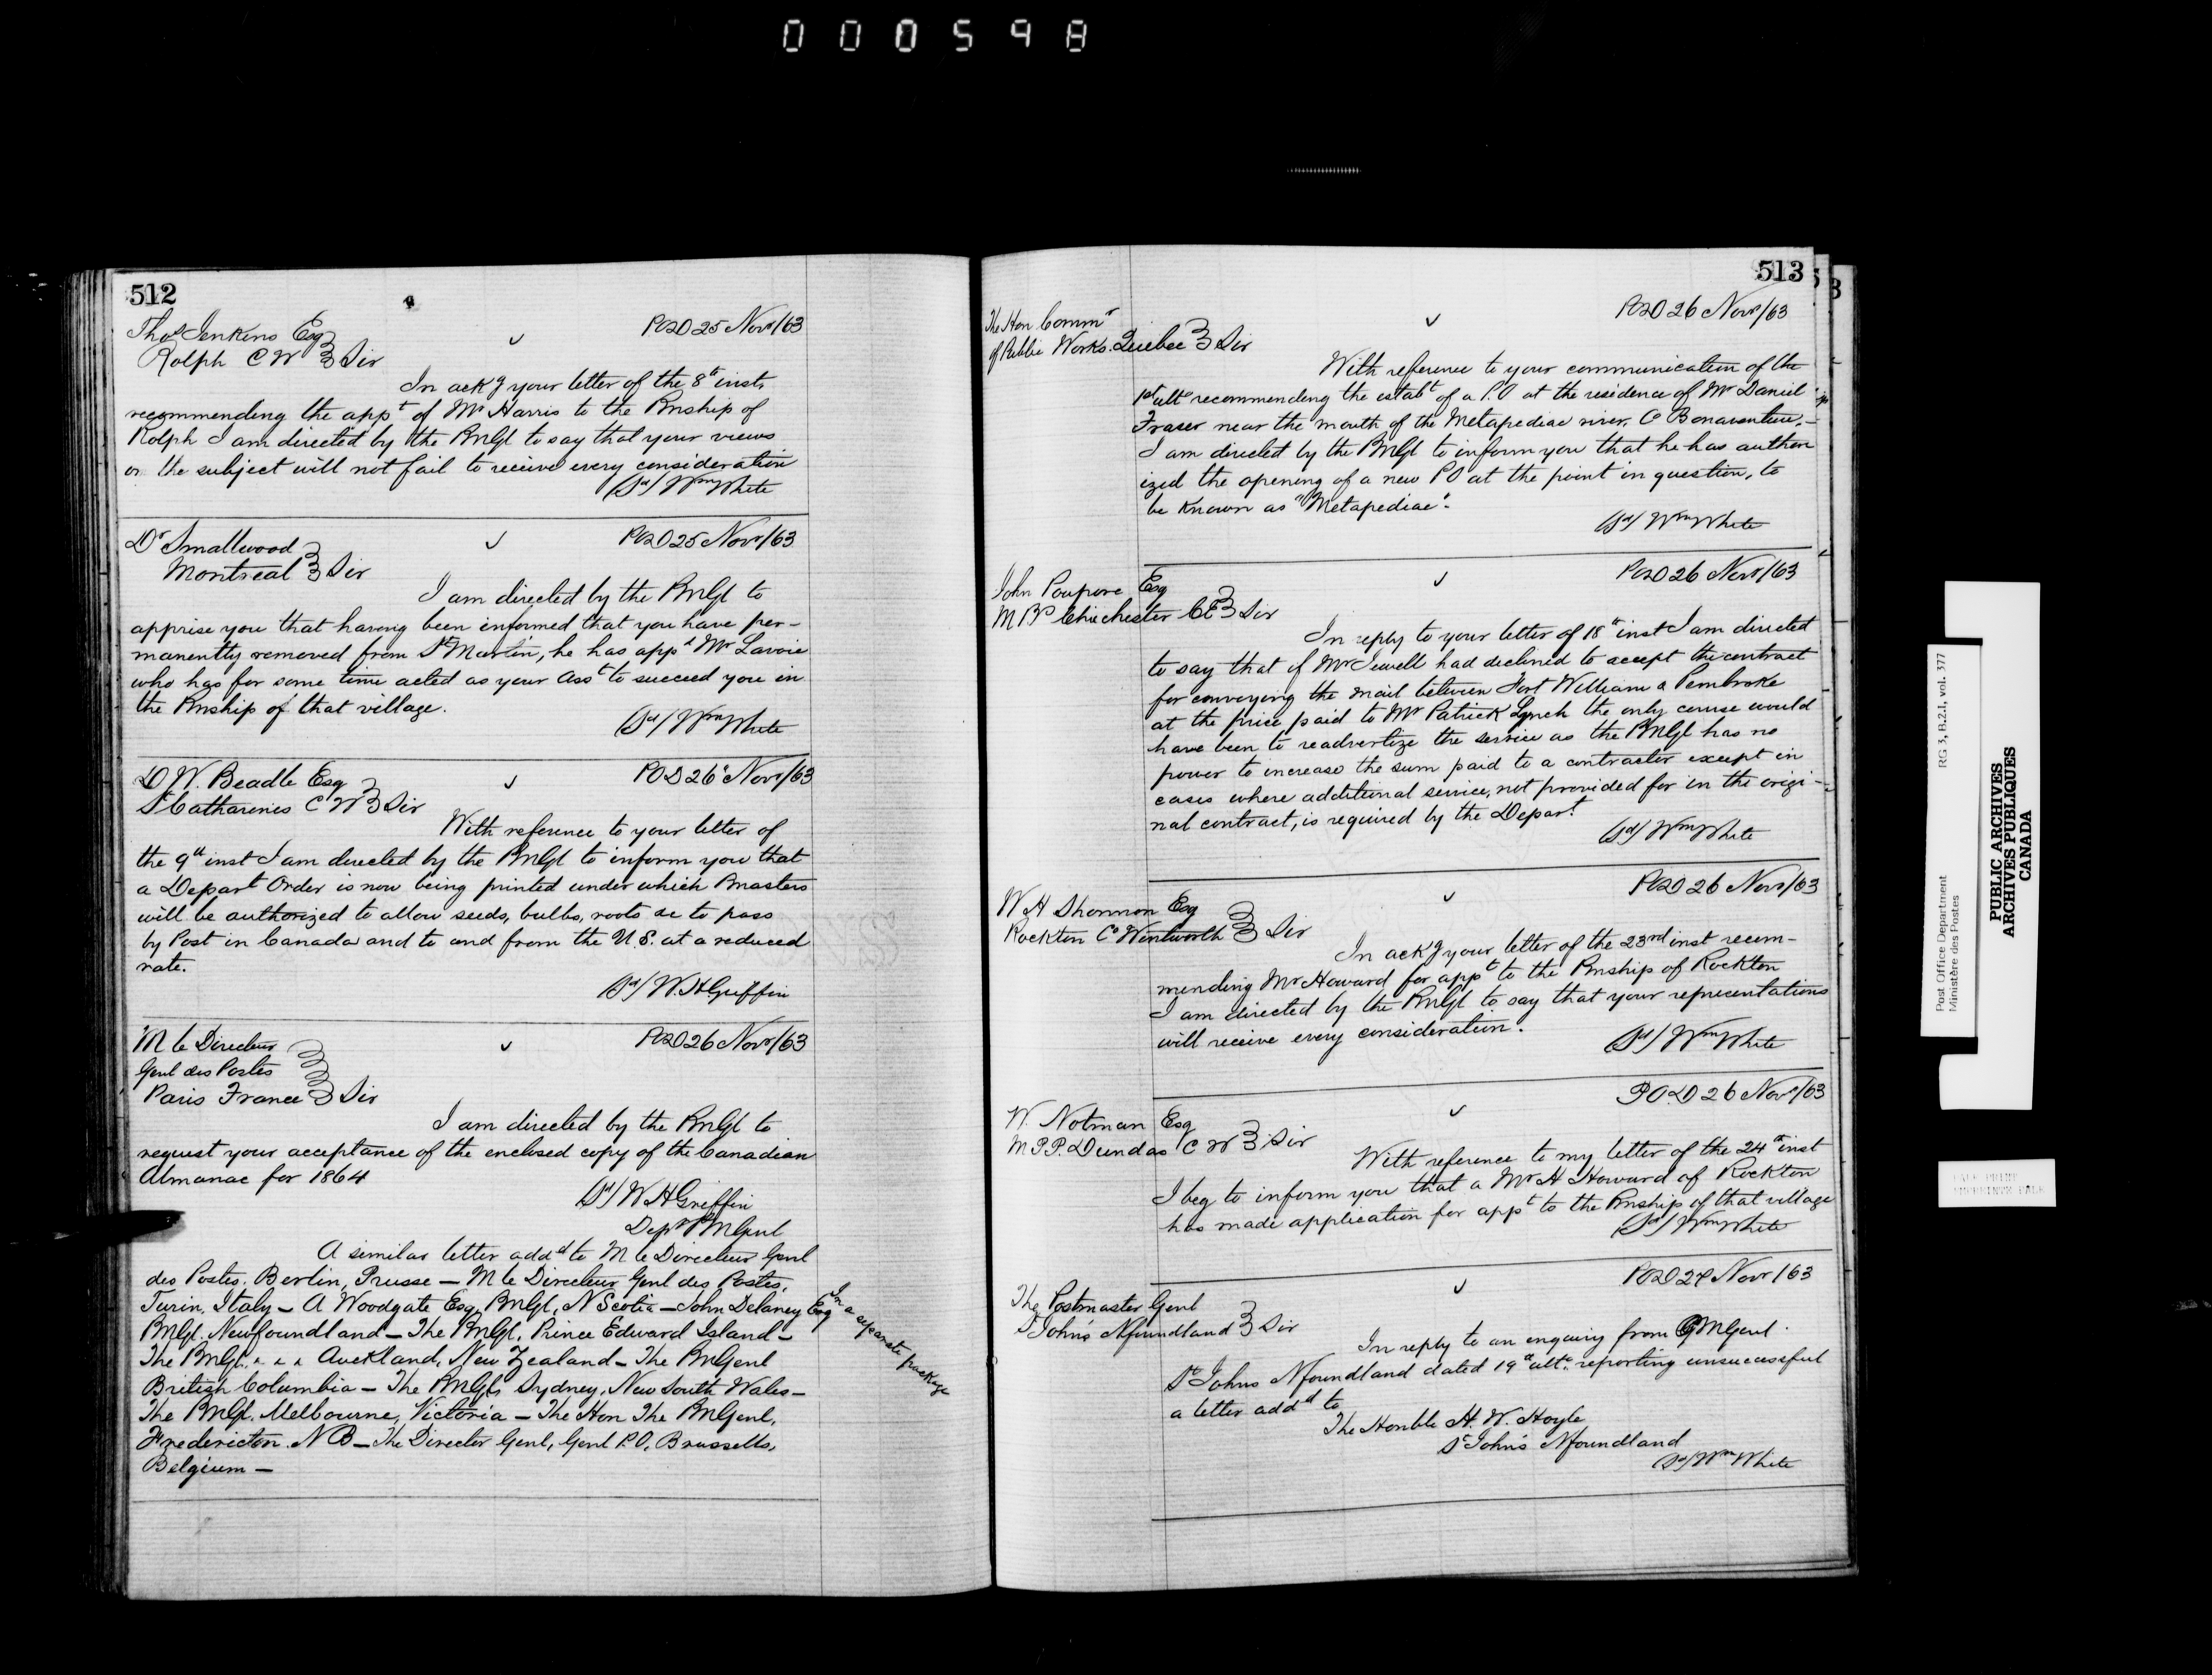 000598
512
Thos Jenkins Esq
Rolph C W } Sir
POD 25 Novr/63
In ackg your letter of the 8th inst.
recommending the appt of Mr Harris to the Pmship of
Rolph I am directed by the PMGl to say that your views
on the subject will not fail to receive every consideration
(Sd/ Wm White
Dr Smallwood
Montreal } Sir
POD 25 Novr/63
I am directed by the PMGl to
apprise you that having been informed that you have per-
manently removed from St Martin, he has appd Mr Lavoie
who has for some time acted as your Asst to succeed you in
the Pmship of that village.
(Sd/ Wm White
D W. Beadle Esq
St Catharines C W } Sir
POD 26th Novr/63
With reference to your letter of
the 9th inst I am directed by the PMGl to inform you that
a Depart Order is now being printed under which Pmasters
will be authorized to allow seeds, bulbs, roots &c to pass
by Post in Canada and to and from the U.S. at a reduced
rate.
(Sd/ W. H Griffin
M le Directeur
Genl des Postes
Paris France } Sir
POD 26 Novr/63
I am directed by the PMGl to
request your acceptance of the enclosed copy of the Canadian
Almanac for 1864
(Sd/ W H Griffin
Depy PMGenl
A similar letter addd to M le Directeur Genl
des Postes. Berlin, Prusse — M le Directeur Genl des Postes,
Turin, Italy — A Woodgate Esq, PMGl, N Scotia — John Delaney Esq
PMGl. Newfoundland — The PMGl, Prince Edward Island —
The PMGl. " " " Auckland, New Zealand — The PMGenl
British Columbia — The PMGl, Sydney, New South Wales —
The PMGl. Melbourne, Victoria — The Hon The PMGenl,
Fredericton. N B — The Director Genl, Genl P.O, Brussells,
Belgium —
In a separate package
513
The Hon. Commr
of Public Works. Quebec } Sir
POD 26 Novr/63
With reference to your communication of the
1st ulto recommending the establt of a P.O at the residence of Mr Daniel
Fraser near the mouth of the Metapediac river, Co Bonaventure,—
I am directed by the PMGl to inform you that he has author
ized the opening of a new PO at the point in question, to
be known as "Metapediac".
(Sd/ Wm White
John Poupore Esq
M PP Chichester CE } Sir
POD 26 Novr/63
In reply to your letter of 18th inst I am directed
to say that if Mr Jewell had declined to accept the contract
for conveying the mail between Fort William & Pembroke
at the price paid to Mr Patrick Lynch the only course would
have been to readvertize the service as the PMGl has no
power to increase the sum paid to a contractor except in
cases where additional service, not provided for in the origi-
nal contract, is required by the Depart.
(Sd/ Wm White
W H Shannon Esq
Rockton Co Wentworth } Sir
POD 26 Novr/63
In ackg your letter of the 23rd inst recom-
mending Mr Howard for appt to the Pmship of Rockton
I am directed by the PMGl to say that your representations
will receive every consideration.
(Sd/ Wm White
W. Notman Esq
M.P.P. Dundas C W } Sir
P.O.D 26 Novr/63
With reference to my letter of the 24th inst
I beg to inform you that a Mr H Howard of Rockton
has made application for appt to the Pmship of that village
(Sd/ Wm White
The Postmaster Genl
St John's Nfoundland } Sir
POD 27 Novr/63
In reply to an enquiry from PMGenl.
St Johns Nfoundland dated 19th ulto. reporting unsuccessful
a letter addd to
The Honble H. W. Hoyle
St John's Nfoundland
(Sd/ Wm White
Post Office Department
Ministère des Postes
RG 3, B.2.1, vol. 377
PUBLIC ARCHIVES
ARCHIVES PUBLIQUES
CANADA